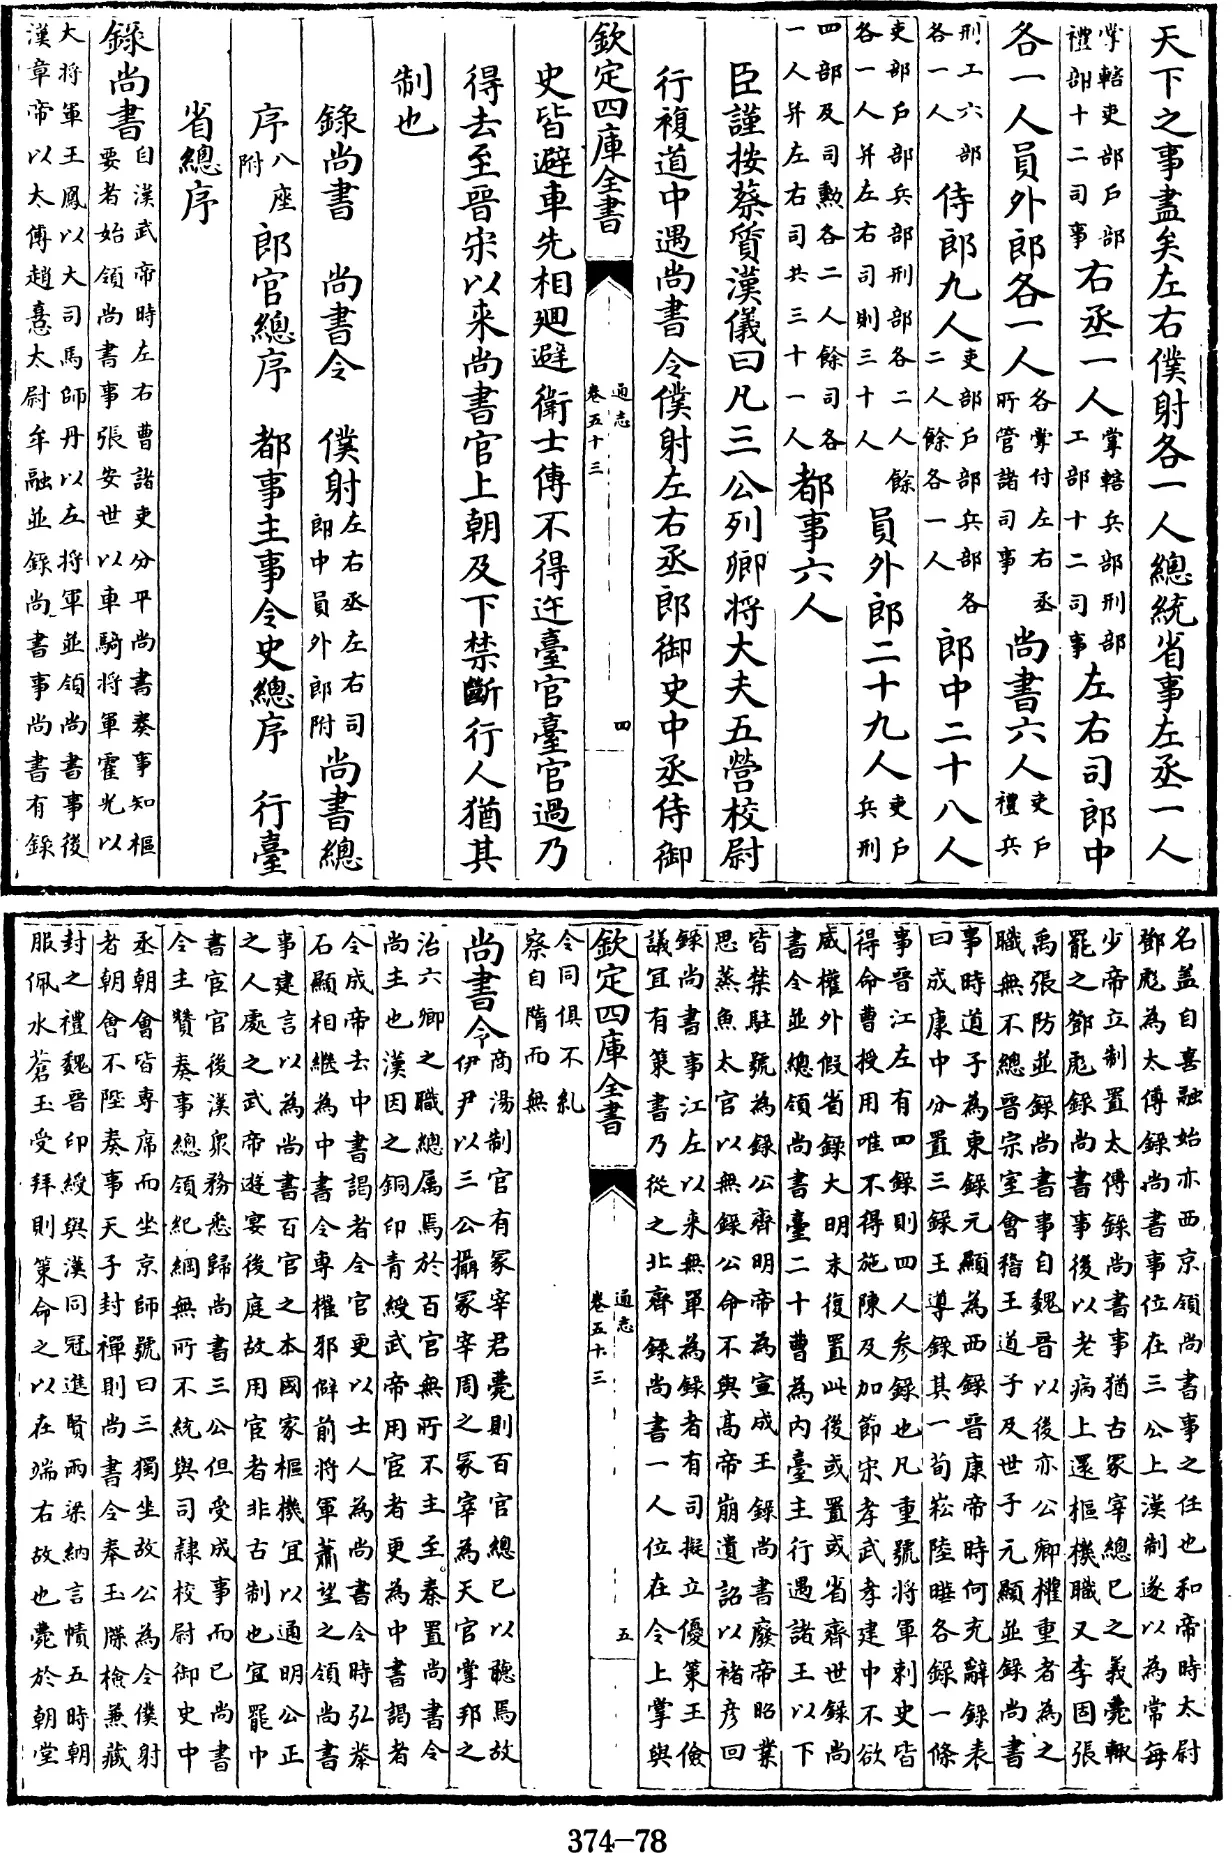 天下之事盡矣左右僕射各一人總統省事左丞一人
掌轄吏部戶部禮部十二司事右丞一人掌轄兵部刑部工部十二司事左右司郎中
各一人員外郎各一人各掌付左右丞所管諸司事尚書六人吏戶禮兵
刑工六部各一人侍郎九人吏部戶部兵部各二人餘各一人郎中二十八人
吏部戶部兵部刑部各二人餘各一人并左右司則三十人員外郎二十九人吏戶兵刑
四部及司勲各二人餘司各一人并左右司共三十一人都事六人
臣謹按蔡質漢儀曰凡三公列卿將大夫五營校尉
行複道中遇尚書令僕射左右丞郎御史中丞侍御
欽定四庫全書 通志 卷五十三 四
史皆避車先相廻避衛士傳不得迕臺官臺官過乃
得去至晉宋以来尚書官上朝及下禁斷行人猶其
制也
錄尚書 尚書令 僕射左右丞左右司郎中員外郎附尚書總
序八座附 郎官總序 都事主事令史總序 行臺
省總序
錄尚書自漢武帝時左右曹諸吏分平尚書奏事知樞
要者始領尚書事張安世以車騎將軍霍光以
大将軍王鳳以大司馬師丹以左将軍並領尚書事後
漢章帝以太傅趙憙太尉牟融並錄尚書事尚書有錄
名盖自憙融始亦西京領尚書事之任也和帝時太尉
鄧彪為太傅錄尚書事位在三公上漢制遂以為常每
少帝立制置太傅錄尚書事猶古冢宰總己之義薨輒
罷之鄧彪錄尚書事後以老病上還樞機職又李固張
禹張防並錄尚書事自魏晉以後亦公卿權重者為之
職無不總晉宗室會稽王道子及世子元顯並錄尚書
事時道子為東錄元顯為西錄晉康帝時何充辭錄表
曰成康中分置三錄王導錄其一荀崧陸曄各錄一條
事晉江左有四錄則四人參錄也凡重號將軍刺史皆
得命曹授用唯不得施陳及加節宋孝武孝建中不欲
威權外假省錄大明末復置此後或置或省齊世錄尚
書令並總領尚書臺二十曹為內臺主行遇諸王以下
皆禁駐號為錄公齊明帝為宣成王錄尚書廢帝昭業
思蒸魚太官以無錄公命不與高帝崩遺詔以褚彥回
錄尚書事江左以来無單為錄者有司擬立優策王儉
議宜有策書乃從之北齊錄尚書一人位在令上掌與
欽定四庫全書 通志 卷五十三 五
令同俱不糺
察自隋而無
尚書令商湯制官有冢宰君薨則百官總己以聽焉故
伊尹以三公攝冢宰周之冢宰為天官掌邦之
治六卿之職總属焉於百官無所不主至秦置尚書令
尚主也漢因之銅印青綬武帝用宦者更為中書謁者
令成帝去中書謁者令官更以士人為尚書令時弘恭
石顯相繼為中書令專權邪僻前将軍蕭望之領尚書
事建言以為尚書百官之本國家樞機宜以通明公正
之人處之武帝遊宴後庭故用宦者非古制也宜罷中
書官官後漢衆務悉歸尚書三公但受成事而已尚書
令主贊奏事總領紀綱無所不統與司隷校尉御史中
丞朝會皆專席而坐京師號曰三獨坐故公為令僕射
者朝會不陛奏事天子封禪則尚書令奉玉牒檢兼藏
封之禮魏晉印綬與漢同冠進賢兩梁納言幘五時朝
服佩水蒼玉受拜則策命之以在端右故也薨於朝堂
374-78